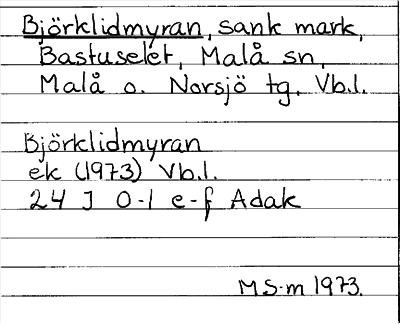 Björklidmyran, sank mark,
Bastuselet, Malå sn,
Malå o. Norsjö tg, Vb.l.
Björklidmyran
ek (1973) Vb.l.
24 J 0-1 e-f Adak
MS-m 1973.